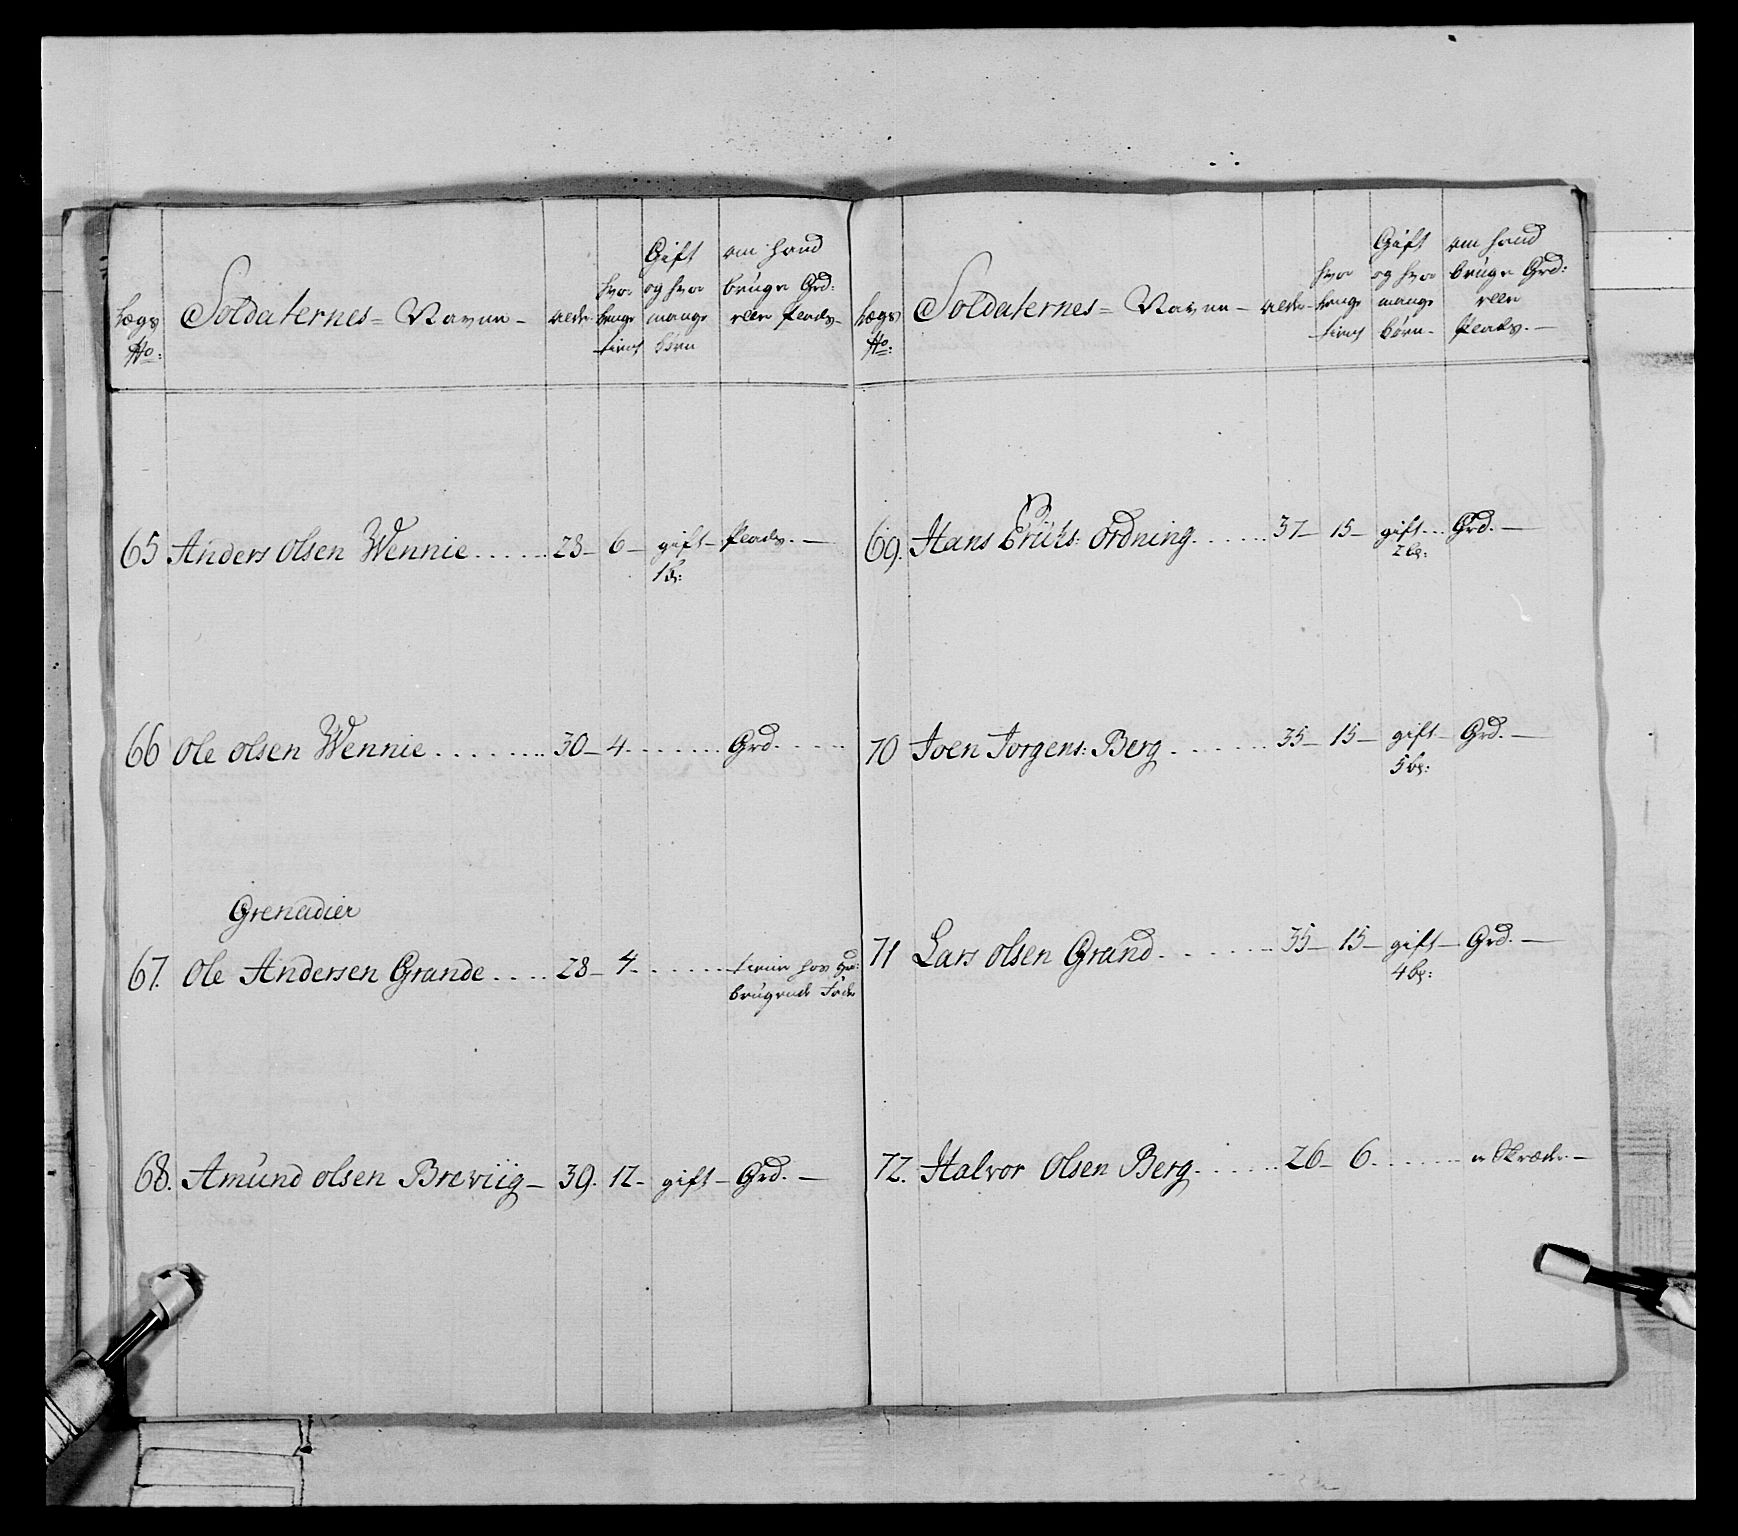 Lægs No: Soldaternes= Navne - Alder hvor længe tient Gift og hvor mange børn om hand bruger Grd: eller Plads -
65 Anders Olsen Wennie 28 - 6 - gift - Plads. -
1 b:
66 Ole Olsen Wennie 30 - 4 Grd.
Grenadier
67. Ole Andersen Grande 28 - 4 tiener hos Grd:
brugende Fader
68. Amund Olsen Breviig - 39. 12 - gift - Grd. -
Lægs No: Soldaternes= Navne - Alder - hvor længe tient Gift og hvor mange børn - om hand bruger Grd: eller Plads. -
69. Hans Erichs: Ordning 37 - 15 - gift Grd. -
2 b:
70 Joen Jorgens: Berg 35 - 15 - gift - Grd. -
5 b:
71 Lars Olsen Grand 35 - 15 - gift - Grd. -
4 b:
72. Halvor Olsen Berg 26 - 6 Skræder -